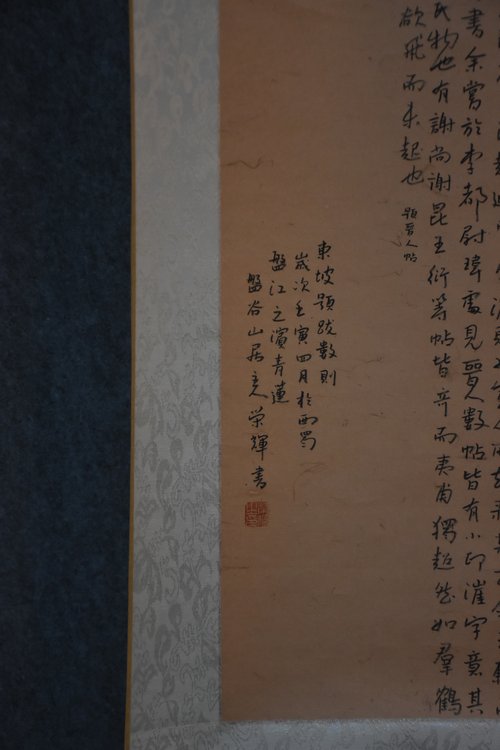 書余嘗於李都尉瑋處見晉人數帖皆有小印涯字意其
氏物也有謝尚謝昆王衍等帖皆奇而夷甫獨超然如羣鶴
欲飛而未起也
題晉人帖
東坡題跋數則
歲次壬寅四月於西蜀
盤江之濱青蓮
盤谷山居主人榮輝書